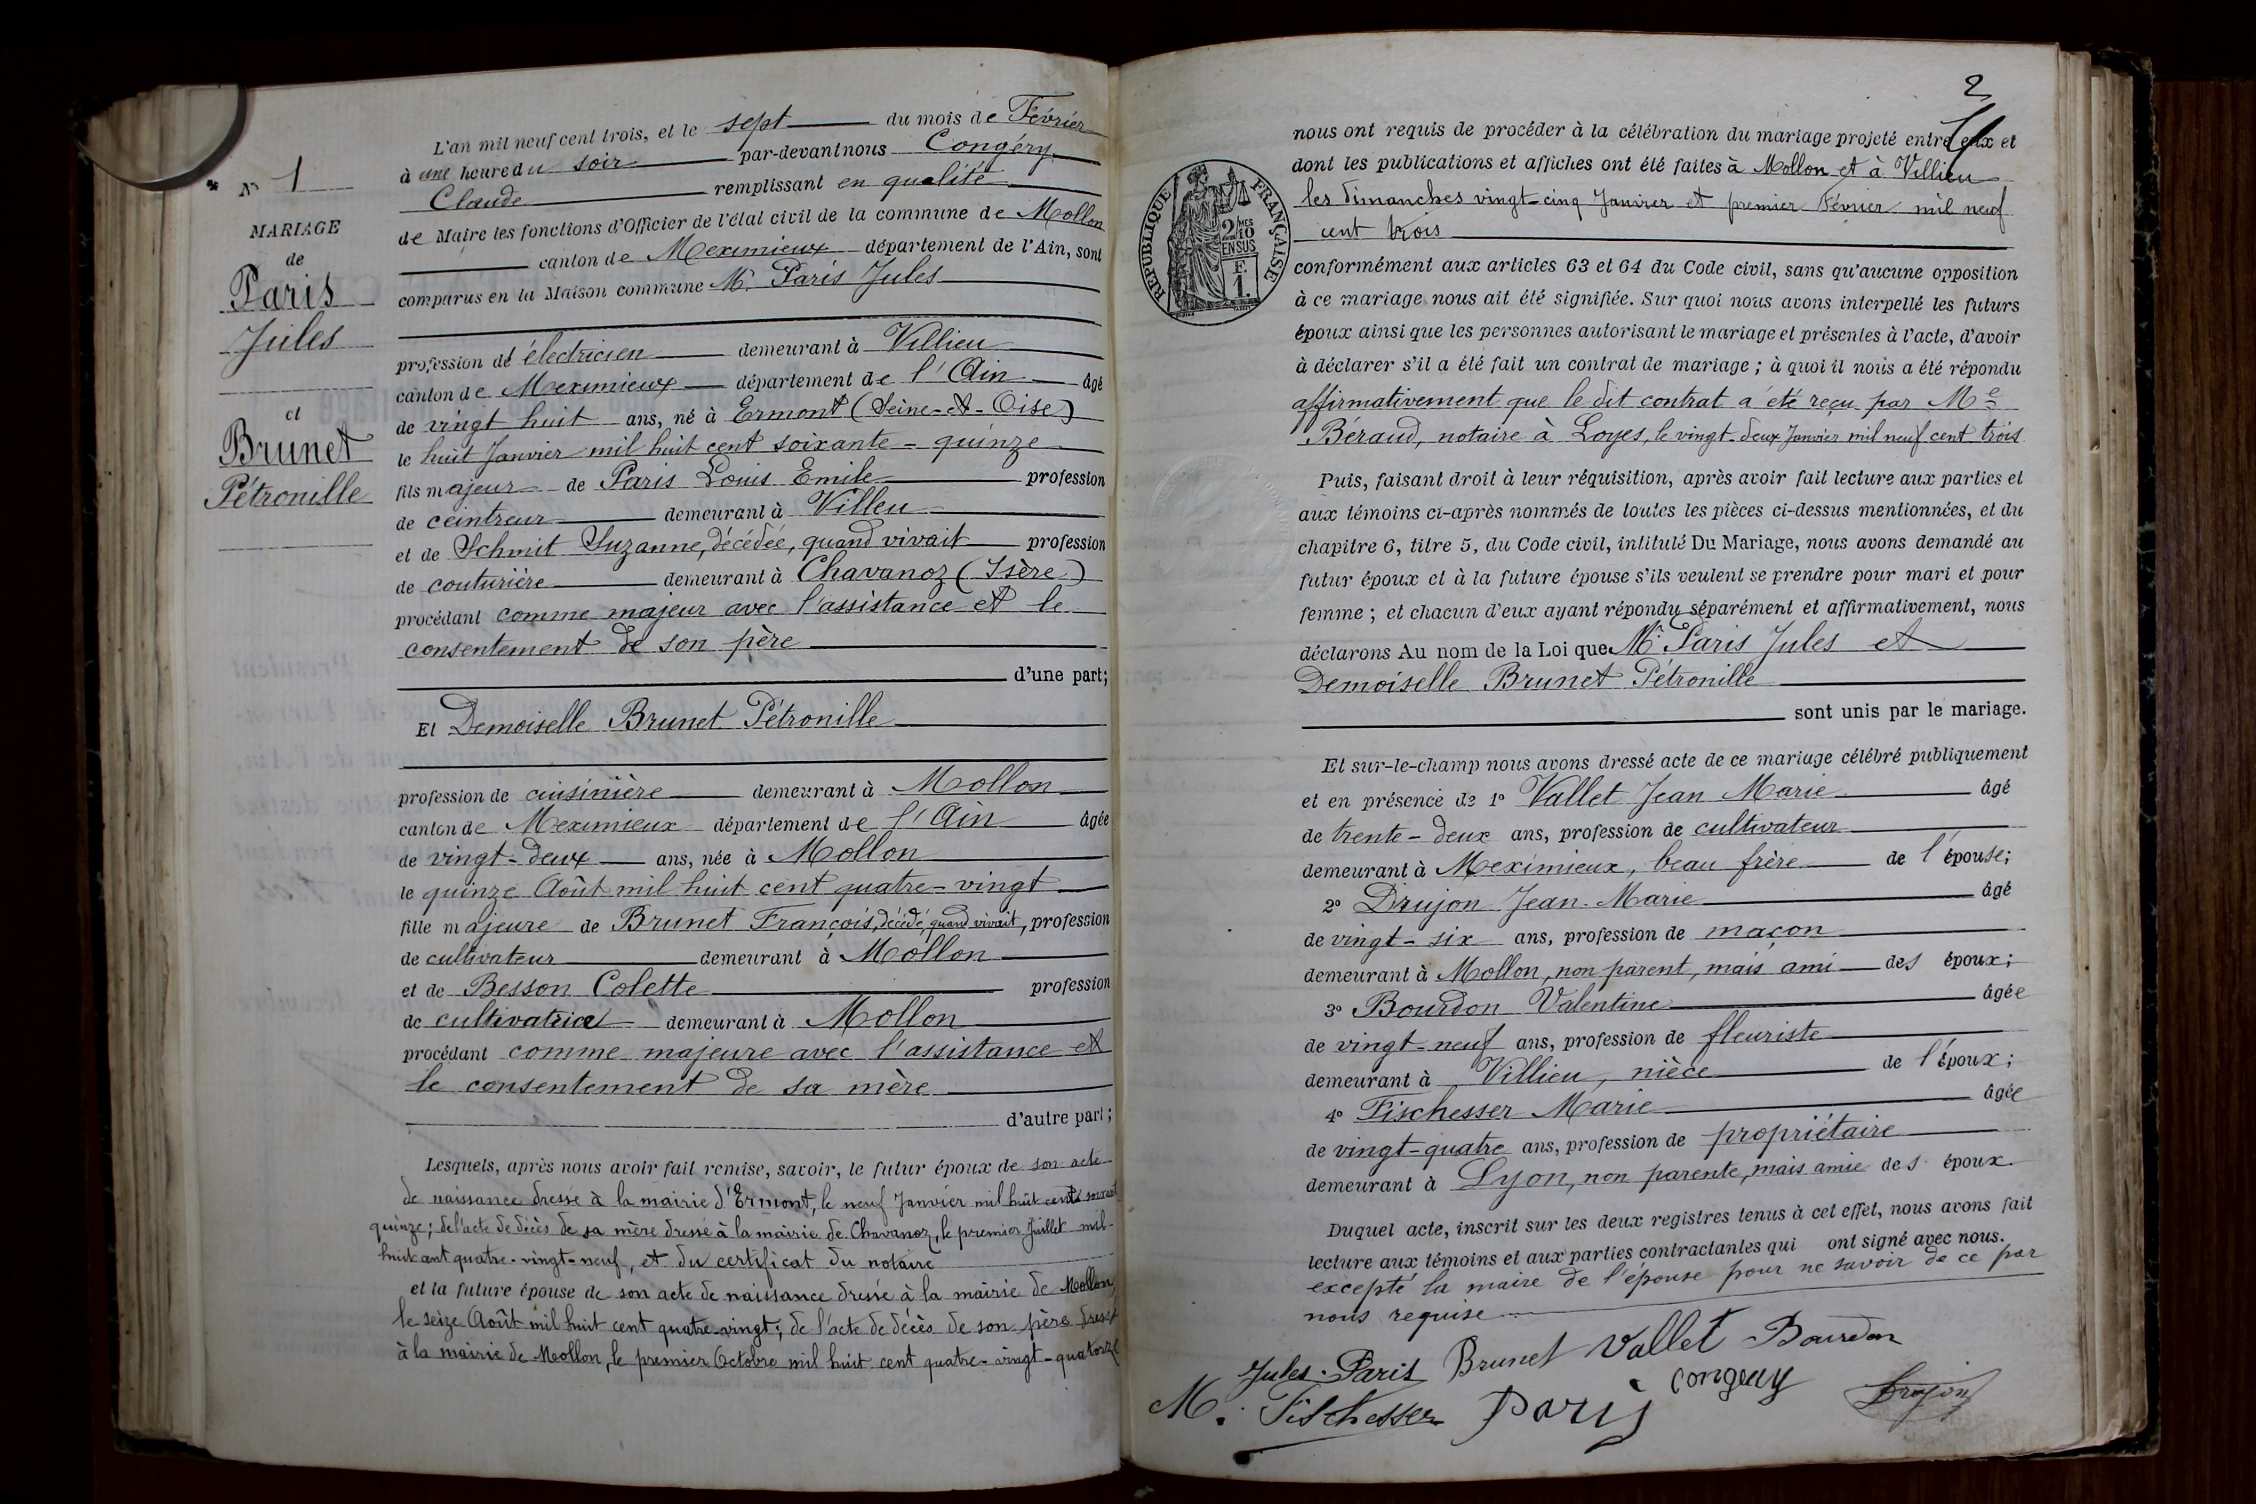 L'an mil neuf cent trois, et le sept du mois de Février
à une heure du soir par-devant nous Congéry
Claude remplissant en qualité
de Maire les fonctions d'Officier de l'état civil de la commune de Mollon
canton de Meximieux département de l'Ain, sont
comparus en la Maison commune Mr. Paris Jules
profession de électricien demeurant à Villieu
canton de Meximieux département de l'Ain âgé
de vingt huit ans, né à Ermont (Seine-et-Oise)
le huit Janvier mil huit cent soixante-quinze
fils majeur de Paris Louis Emile profession
de ceintreur demeurant à Villeu
et de Schmit Suzanne, décédée, quand vivait profession
de couturière demeurant à Chavanoz (Isère)
procédant comme majeur avec l'assistance et le
consentement de son père
d'une part;
Et Demoiselle Brunet Pétronille
profession de cuisinière demeurant à Mollon
canton de Meximieux département de l'Ain âgée
de vingt-deux ans, née à Mollon
le quinze Août mil huit cent quatre-vingt
fille majeure de Brunet François, décédé, quand vivait, profession
de cultivateur demeurant à Mollon
et de Besson Colette profession
de cultivatrice demeurant à Mollon
procédant comme majeure avec l'assistance et
le consentement de sa mère
d'autre part;
Lesquels, après nous avoir fait remise, savoir, le futur époux de son acte
de naissance dressé à la mairie d'Ermont, le neuf Janvier mil huit cent soixante
quinze; de l'acte de décès de sa mère dressé à la mairie de Chavanoz, le premier Juillet mil
huit cent quatre-vingt-neuf, et du certificat du notaire
et la future épouse de son acte de naissance dressé à la mairie de Mollon,
le seize Août mil huit cent quatre-vingt; de l'acte de décès de son père dressé
à la mairie de Mollon, le premier Octobre mil huit cent quatre-vingt-quatorze
N° 1
MARIAGE
de
Paris
Jules
et
Brunet
Pétronille
2
nous ont requis de procéder à la célébration du mariage projeté entre eux et
dont les publications et affiches ont été faites à Mollon et à Villieu
les dimanches vingt-cinq Janvier et premier Février mil neuf
cent trois
RÉPUBLIQUE FRANÇAISE
2/10 MES
EN SUS
F.
1.
conformément aux articles 63 et 64 du Code civil, sans qu'aucune opposition
à ce mariage nous ait été signifiée. Sur quoi nous avons interpellé les futurs
époux ainsi que les personnes autorisant le mariage et présentes à l'acte, d'avoir
à déclarer s'il a été fait un contrat de mariage; à quoi il nous a été répondu
affirmativement que le dit contrat a été reçu par Me
Béraud, notaire à Loyes, le vingt-deux Janvier mil neuf cent trois
Puis, faisant droit à leur réquisition, après avoir fait lecture aux parties et
aux témoins ci-après nommés de toutes les pièces ci-dessus mentionnées, et du
chapitre 6, titre 5, du Code civil, intitulé Du Mariage, nous avons demandé au
futur époux et à la future épouse s'ils veulent se prendre pour mari et pour
femme; et chacun d'eux ayant répondu séparément et affirmativement, nous
déclarons Au nom de la Loi que Mr. Paris Jules et
Demoiselle Brunet Pétronille
sont unis par le mariage.
Et sur-le-champ nous avons dressé acte de ce mariage célébré publiquement
et en présence de 1° Vallet Jean Marie âgé
de trente-deux ans, profession de cultivateur
demeurant à Meximieux, beau frère de l'épouse;
2° Drujon Jean-Marie âgé
de vingt-six ans, profession de maçon
demeurant à Mollon, non parent, mais ami des époux;
3° Bourdon Valentine âgée
de vingt-neuf ans, profession de fleuriste
demeurant à Villieu, nièce de l'époux;
4° Fischesser Marie âgée
de vingt-quatre ans, profession de propriétaire
demeurant à Lyon, non parente, mais amie des époux.
Duquel acte, inscrit sur les deux registres tenus à cet effet, nous avons fait
lecture aux témoins et aux parties contractantes qui ont signé avec nous.
excepté la maire de l'épouse pour ne savoir de ce par
nous requise
Jules Paris Brunet Vallet Bourdon
M. Fischesser Paris Congery Drujon